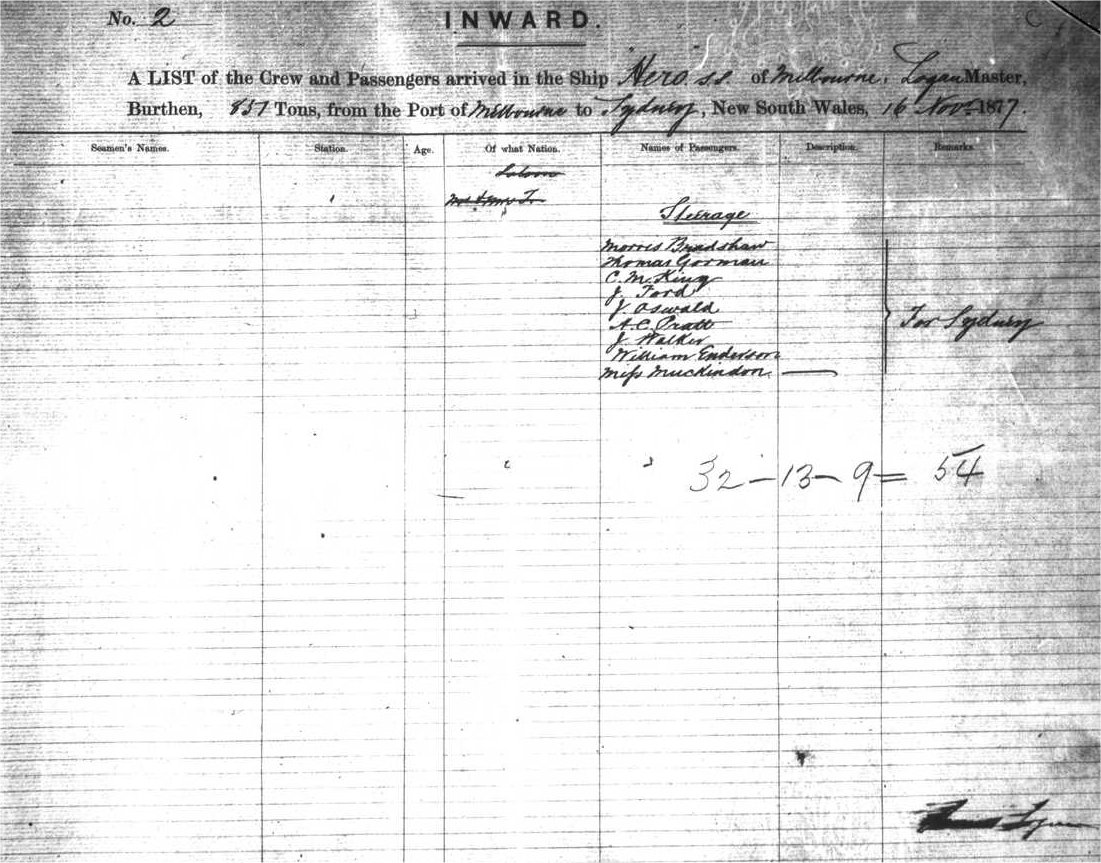 No. 2
INWARD.
A LIST of the Crew and Passengers arrived in the Ship Hero ss. of Melbourne, Logan Master,
Burthen, 851 Tons, from the Port of Melbourne to Sydney, New South Wales, 16 Novr 1877
Seamen's Names. Station. Age. Of what Nation. Names of Passengers. Description. Remarks.
Saloon
Steerage
Morris Bradshaw
Thomas Gorman
C. M. King
J Ford
J Oswald
A. C. Pratt
J Walker
William Enderson
Miss Muckindon
For Sydney
32 - 13 - 9 = 54